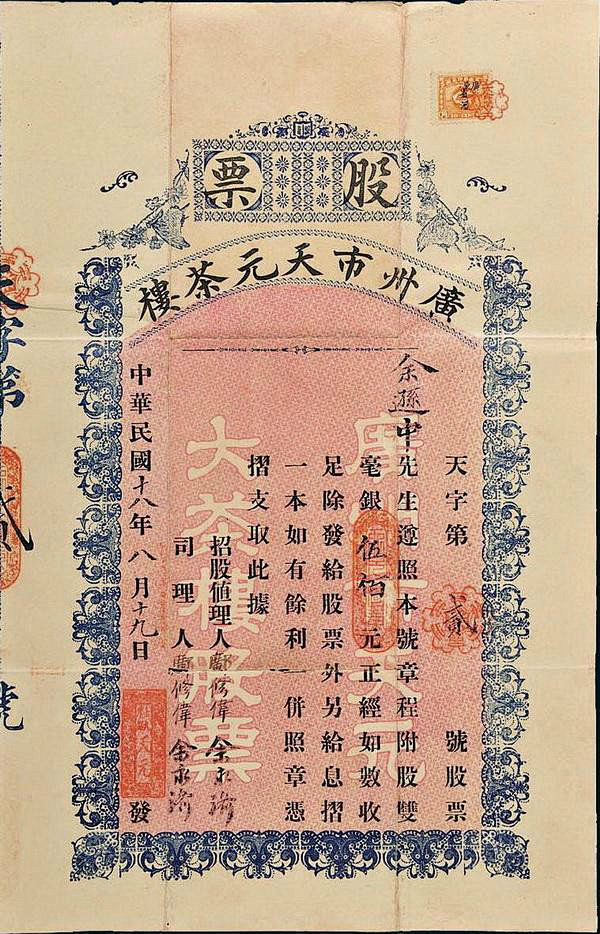 股票
廣州市天元茶樓
天字第貳號股票
余遜中先生遵照本號章程附股雙
毫銀伍佰元正經如數收
足除發給股票外另給息摺
一本如有餘利一併照章憑
摺支取此據
招股値理人鄺修偉 余永
司理人鄺修偉 余永
中華民國十八年八月十九日發
廣州市天元
大茶樓股票
天字第貳號